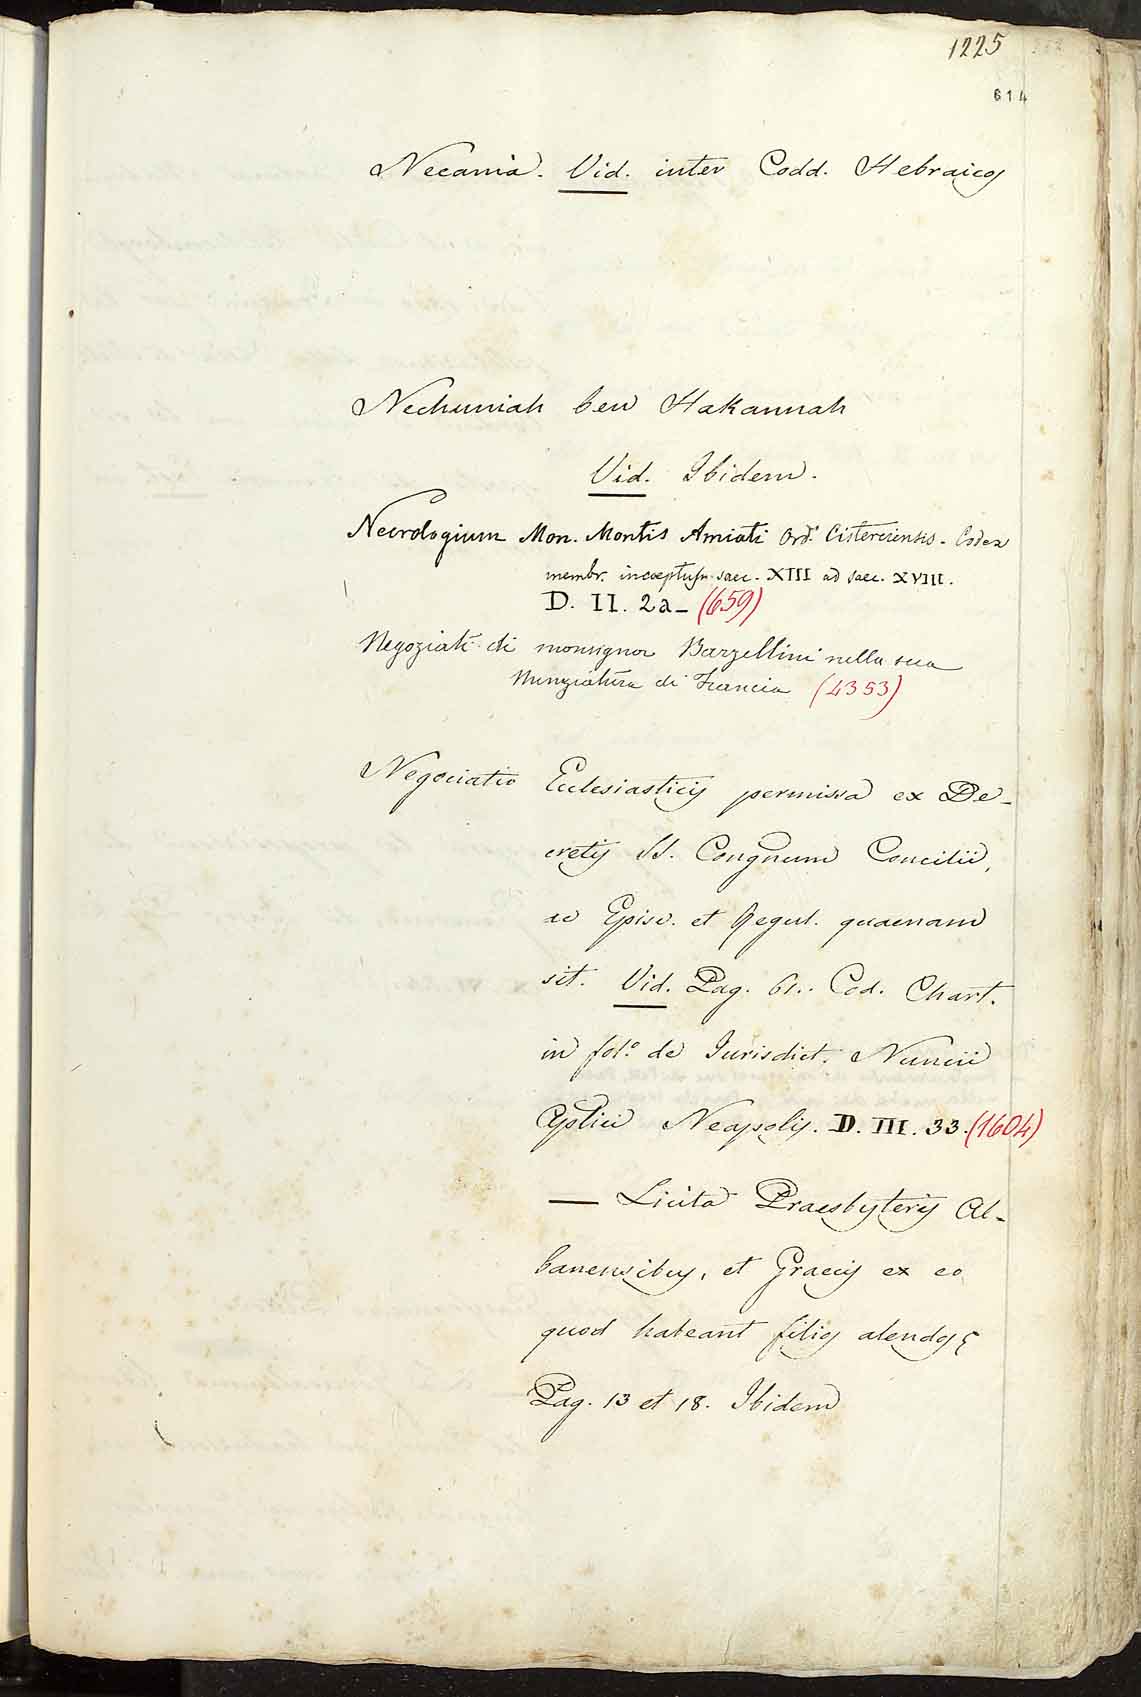 1225
614
Necania. Vid. inter Codd. Hebraicos
Nechuniah ben Hakannah
Vid. Ibidem.
Necrologium Mon. Montis Amiati Ord. Cisterciensis. Codex
membr. inceptus saec. XIII ad saec. XVIII.
D. II. 2a_ (659)
Negoziati di monsignor Barzellini nella sua
Nunziatura di Francia (4353)
Negociatio Ecclesiasticis permissa ex De-
cretis SS. Congnum Concilii,
ac Episc. et Regul. quaenam
sit. Vid. Pag. 61. Cod. Chart.
in fol.º de Jurisdict. Nuncii
Aplici Neapolis. D. III. 33. (1604)
— Licita Praesbyteris Al-
banensibus, et Graecis ex eo
quod habeant filios alendos
Pag. 13 et 18. Ibidem